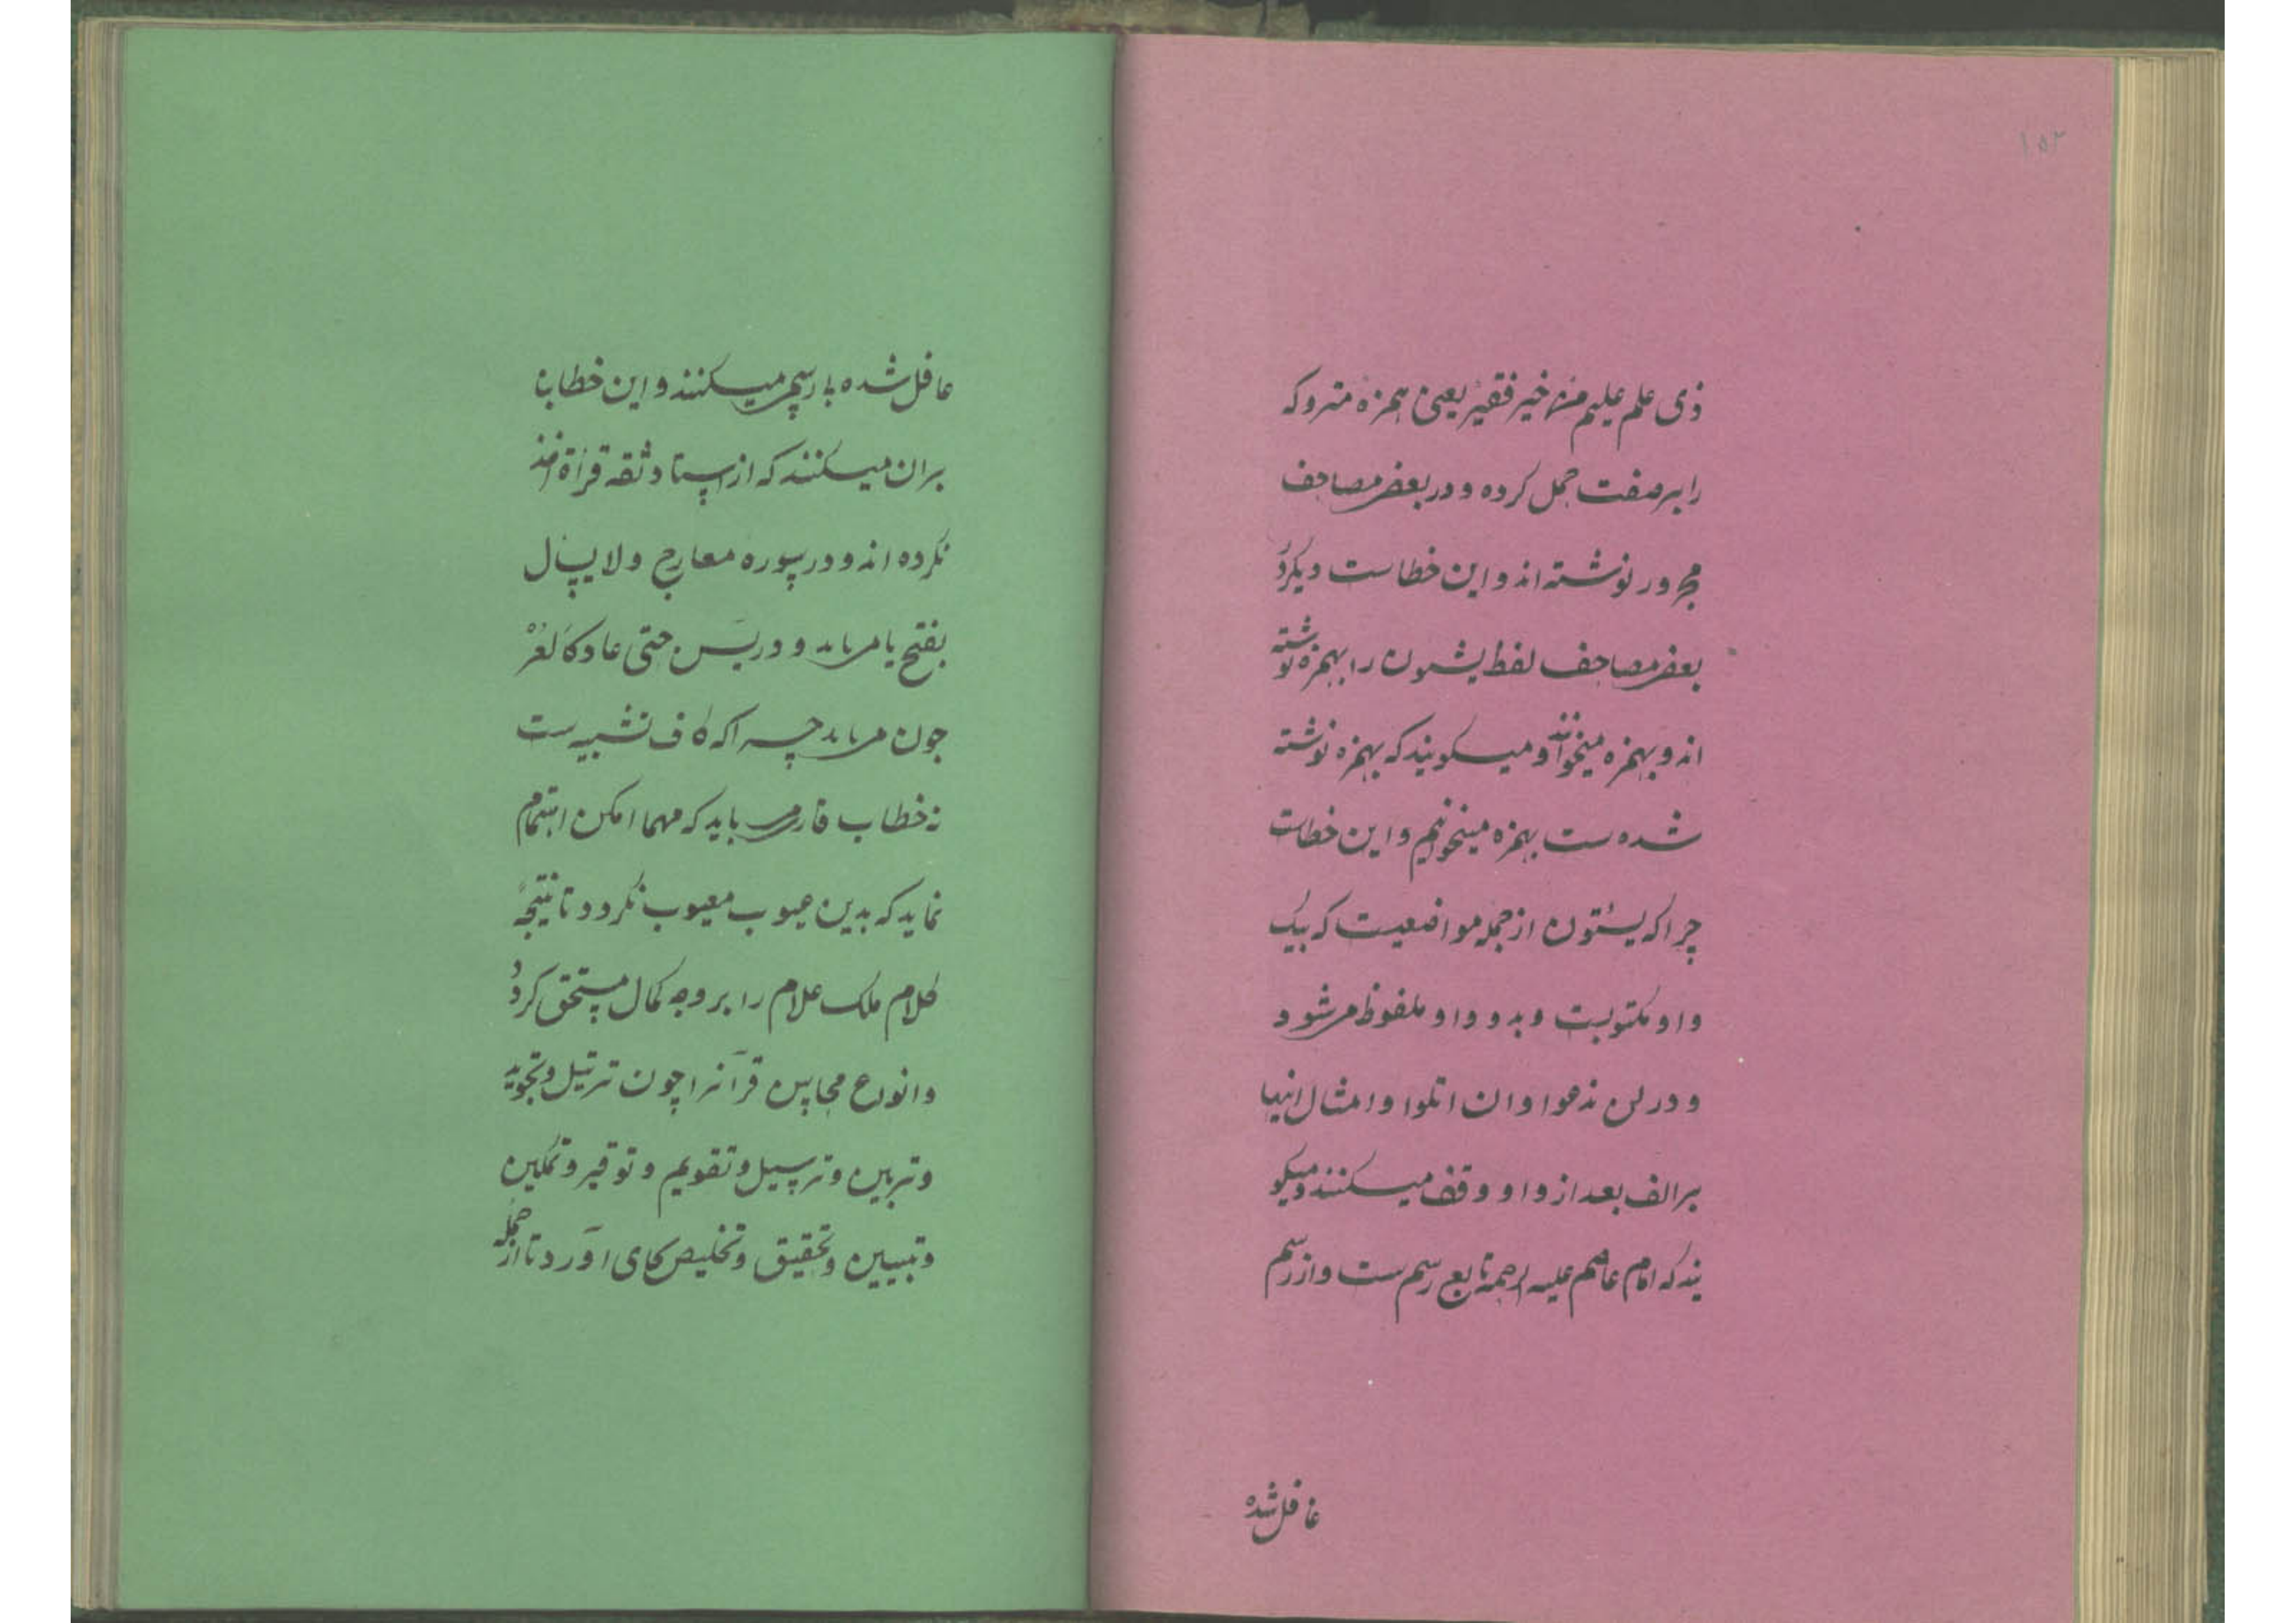 ۱۵۳
ذی علم علیم منْ خیر فقیر یعنی همزه متروکه
را بر صفت حمل کرده و در بعض مصاحف
مجرور نوشته اند و این خطاست دیکر در
بعض مصاحف لفظ یستون را بهمزه نوشته
اند و بهمزه میخوانند و میکویند که بهمزه نوشته
شده ست بهمزه میخوانیم و این خطاست
چرا که یستون از جمله مواضعیست که بیک
واو مکتوبست و بدو واو ملفوظ می شود
و در لن ندعوا وان اتلوا و امثال اینها
بر الف بعد از واو وقف میکنند و میکو
یند که امام عاصم علیه الرحمة تابع رسم ست و از رسم
غافل شده
غافل شده با رسم میکنند و این خطا بنا
بران میکنند که از استاد ثقه قراة اخذ
نکرده اند و در سوره معارج ولا یسال
بفتح یا می باید و در یس حتی عاد کالعر
جون می باید چرا که کاف تشبیه ست
نه خطاب قاری می باید که مهما امکن اهتمام
نماید که بدین عیوب معیوب نکردد تا نتیجهٔ
کلام ملک علام را بر وجه کمال مستحق کردد
و انواع محاسن قرآنرا چون ترتیل و تجوید
و تزیین و ترسیل و تقویم و توقیر و تمکین
و تبیین و تحقیق و تخلیص بجای آورد تا از جمله